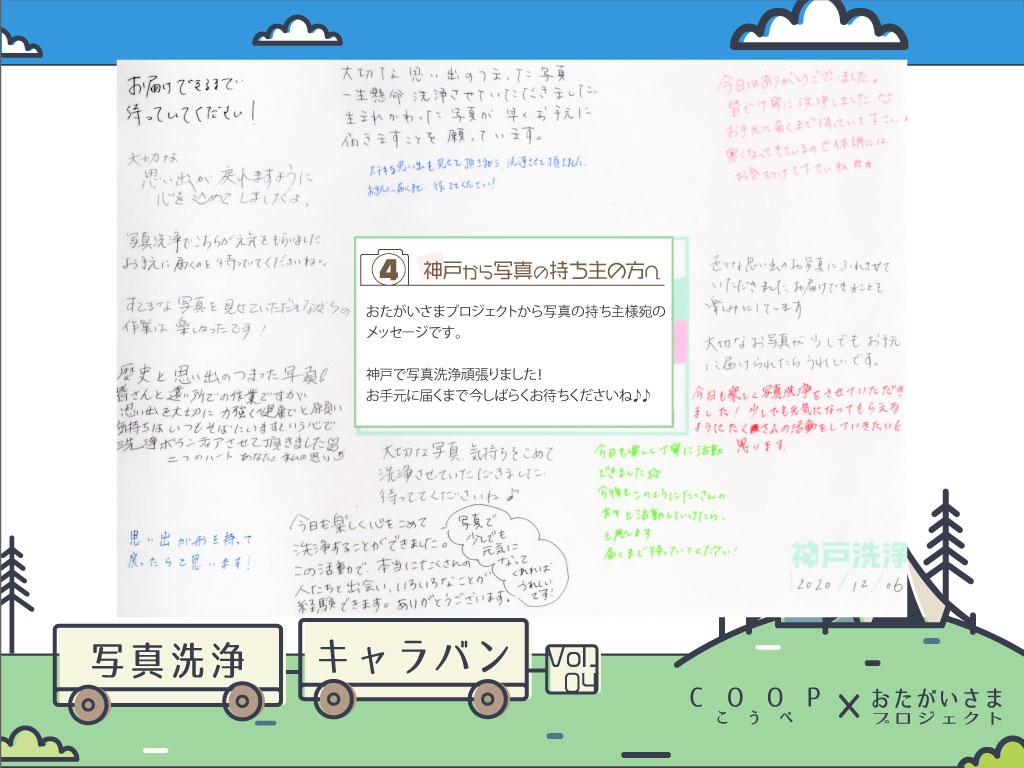 お届けできるまで
待っていてください！
大切な思い出のつまった写真
一生懸命 洗浄させていただきました。
生まれかわった写真が 早くお手元に
届きますことを 願っています。
大切な思い出を見せて頂き乍ら、洗浄させて頂きました。
お手元に届くまで 待っててください！
今日はありがとうございました。
皆で丁寧に洗浄しました
お手元に届くまで待っていて下さい
寒くなってきているので体調には
お気をつけて下さいね☆★
大切な
思い出が戻れますように
心を込めてしましたよ。
写真洗浄でこちらが元気をもらいました。
お手元に届くのを待っていてくださいね
すてきな写真を見せていただきながらの
作業は楽しかったです！
歴史と思い出のつまった写真!
皆さんと遠い所での作業ですが
思い出を大切に 力強く健康でと願い
気持ちはいつもそばにいますという心で
洗浄ボランティアさせて頂きました
二つのハート あなたと私の思い
④ 神戸から写真の持ち主の方へ
おたがいさまプロジェクトから写真の持ち主様宛の
メッセージです。
神戸で写真洗浄頑張りました!
お手元に届くまで今しばらくお待ちくださいね♪♪
色々な思い出のお写真にふれさせて
いただきました。お届けできることを
楽しみにしています
大切なお写真が少しでもお手元
に届けられたらうれしいです。
今日も楽しく写真洗浄をさせていただき
ました！少しでも元気になってもらえる
ようにたくさんの活動をしていきたいと
思います。
大切な写真 気持ちをこめて
洗浄させていただきました。
待っててくださいね♪
今日も楽しく丁寧に活動
できました☆
今後もこのようにたくさんの
方々と活動していけたら、
と思います
届くまで待っていてください！
思い出が形を持って
戻ったらと思います！
今日も楽しく心をこめて
洗浄することができました。
この活動で、本当にたくさんの
人たちと出会い、いろいろなことが
経験できます。ありがとうございます。
写真で
少しでも
元気に
なって
くれれば
うれしい
です!
神戸洗浄
2020/12/06
写真洗浄
キャラバン
Vol.
04
COOP
こうべ
×
おたがいさま
プロジェクト